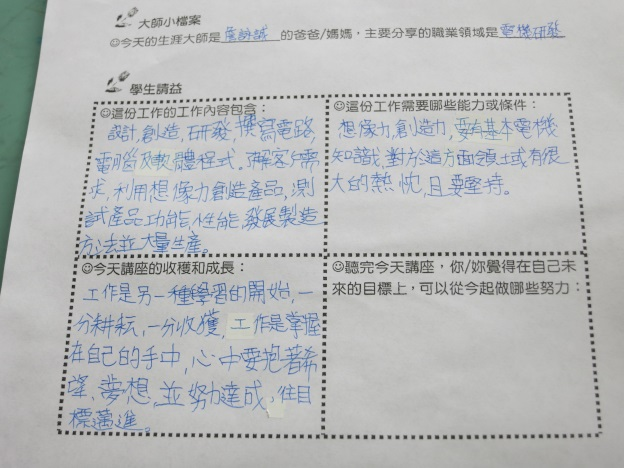 大師小檔案
☺今天的生涯大師是詹詠誠的爸爸/媽媽，主要分享的職業領域是電機研發
學生請益
☺這份工作的工作內容包含：
設計,創造,研發,撰寫電路,
電腦及軟體程式。瞭解客戶需
求,利用想像力創造產品,測
試產品功能,性能,發展製造
方法並大量生產。
☺這份工作需要哪些能力或條件：
想像力,創造力,要有基本電機
知識,對於這方面領域有很
大的熱忱,且要堅持。
☺今天講座的收穫和成長：
工作是另一種學習的開始,一
分耕耘,一分收獲,工作是掌握
在自己的手中,心中要抱著希
望、夢想,並努力達成,往目
標邁進。
☺聽完今天講座，你/妳覺得在自己未
來的目標上，可以從今起做哪些努力：